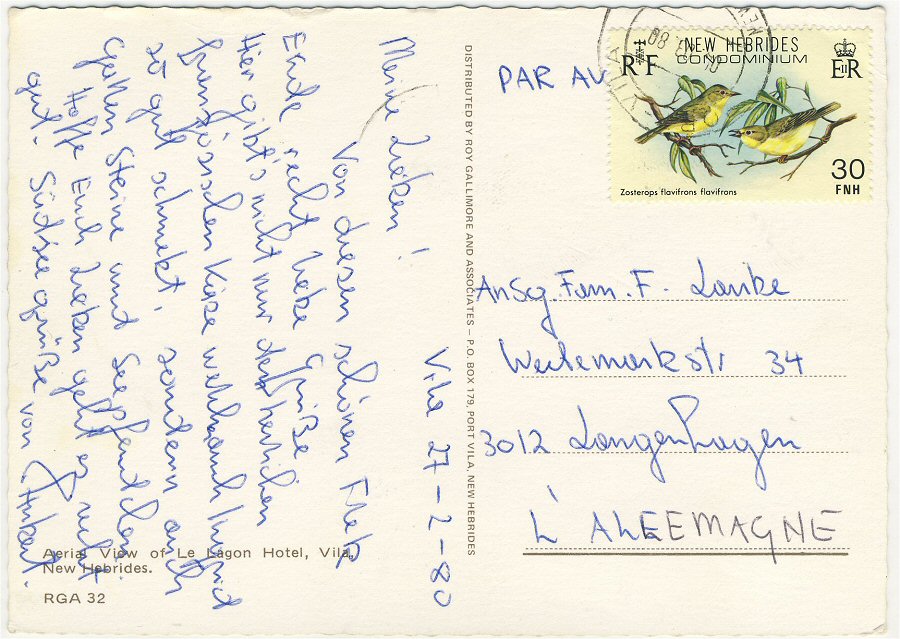 Meine Lieben!
Vila 27-2-80
Von diesem schönen Fleck
Erde recht liebe Grüße
Hier gibt's nicht nur den herrlichen
französischen Käse
so gut schmeckt, sondern auch
Steine und Seepferdchen
Hoffe Euch Lieben geht es recht
gut. Südseegrüße von
Aerial View of Le Lagon Hotel, Vila,
New Hebrides.
RGA 32
DISTRIBUTED BY ROY GALLIMORE AND ASSOCIATES – P.O. BOX 179, PORT VILA, NEW HEBRIDES
PAR AV
NEW HEBRIDES
CONDOMINIUM
RF
EIIR
30
FNH
Zosterops flavifrons flavifrons
Fam. F. Lanke
34
3012 Langenhagen
L'ALLEMAGNE